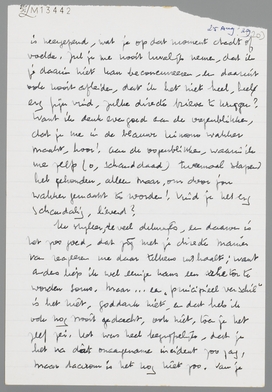 LM13442
25 Aug '79
is weergegeven, wat je op dat moment dacht of
voelde. Zul je me nooit kwalijk nemen, dat ik
je daarin niet kan beconcurreren en daaruit
ook nooit afleiden, dat ik het niet heel, heel
erg fijn vind, jullie directe brieven te krijgen?
Want ik denk evengoed aan de ogenblikken,
dat je me in de blauwe kimono wakker
maakt, hoor, aan de ogenblikken, waarin ik
me zelfs (o, schanddaad) tweemaal slapend
het gehouden, alleen maar, om door jou
wakker gemaakt te worden! Vind je het erg
schandalig, lieverd?
en daarom is
het zo goed, dat jij met je directe manier
van reageren me daar telkens uithaalt; want
anders heb ik wel eens kans een
te
worden soms. Maar ... een „principieel verschil"
is het niet, goddank niet, en dat heb ik
ook nog nooit gedacht, ook niet, toen je het
zelf zei. Het was heel begrijpelijk, dat je
het na dat onaangename incident zou zeggen,
maar daarom is het nog niet zo. Van je